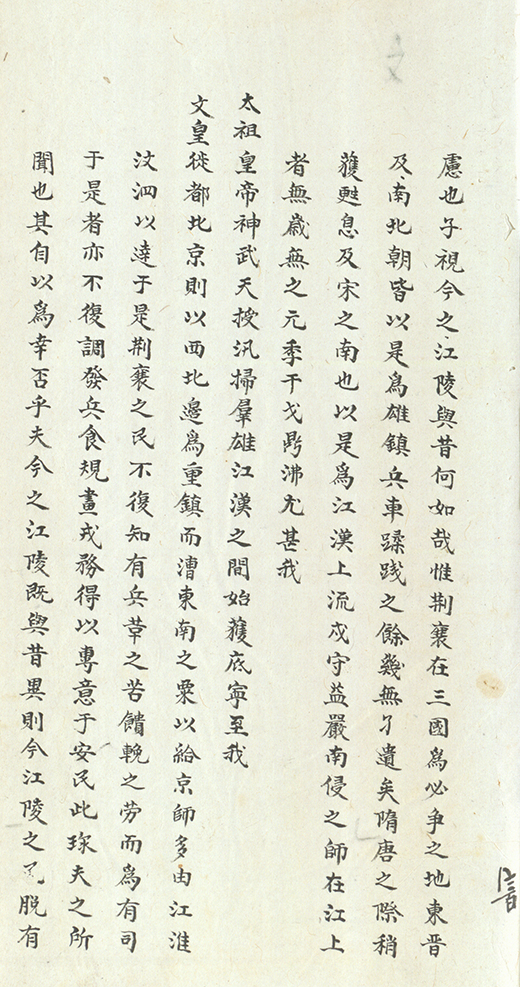 慮也子視今之江陵與昔何如哉惟荆襄在三國爲必爭之地東晋
及南北朝皆以是爲雄鎮兵車蹂踐之餘幾無孑遺矣隋唐之際稍
獲甦息及宋之南也以是爲江漢上流戍守益嚴南侵之師在江上
者無歲無之元季干戈鼎沸尤甚我
太祖皇帝神武天授汛掃羣雄江漢之間始獲底寧至我
文皇徙都北京則以西北邊爲重鎮而漕東南之粟以給京師多由江淮
汶泗以達于是荆襄之民不復知有兵革之苦饋輓之劳而爲有司
于是者亦不復調發兵食規畫戎務得以專意于安民此琛夫之所
聞也其自以爲幸否乎夫今之江陵既與昔異則今江陵之民脱有